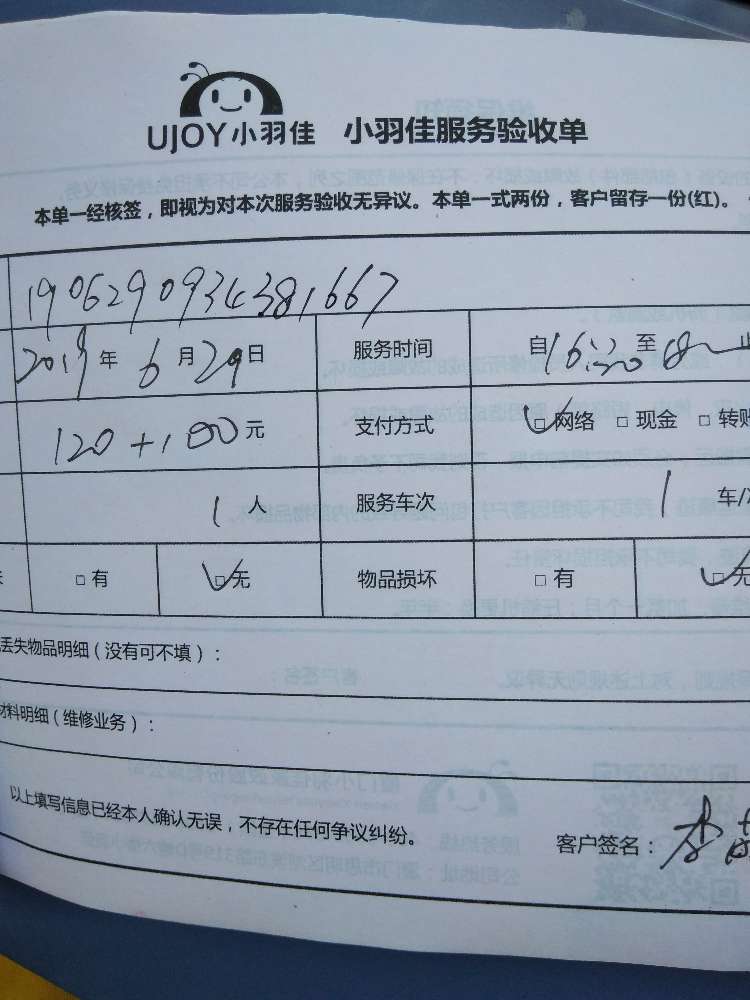 UJOY小羽佳 小羽佳服务验收单
本单一经核签，即视为对本次服务验收无异议。本单一式两份，客户留存一份(红)。
1906290934381667
2019年6月29日 服务时间 自16:30至 止
120+100元 支付方式 ☑网络 □现金 □转账
1人 服务车次 1 车/
□有 ☑无 物品损坏 □有 ☑无
丢失物品明细（没有可不填）：
材料明细（维修业务）：
以上填写信息已经本人确认无误，不存在任何争议纠纷。 客户签名：李